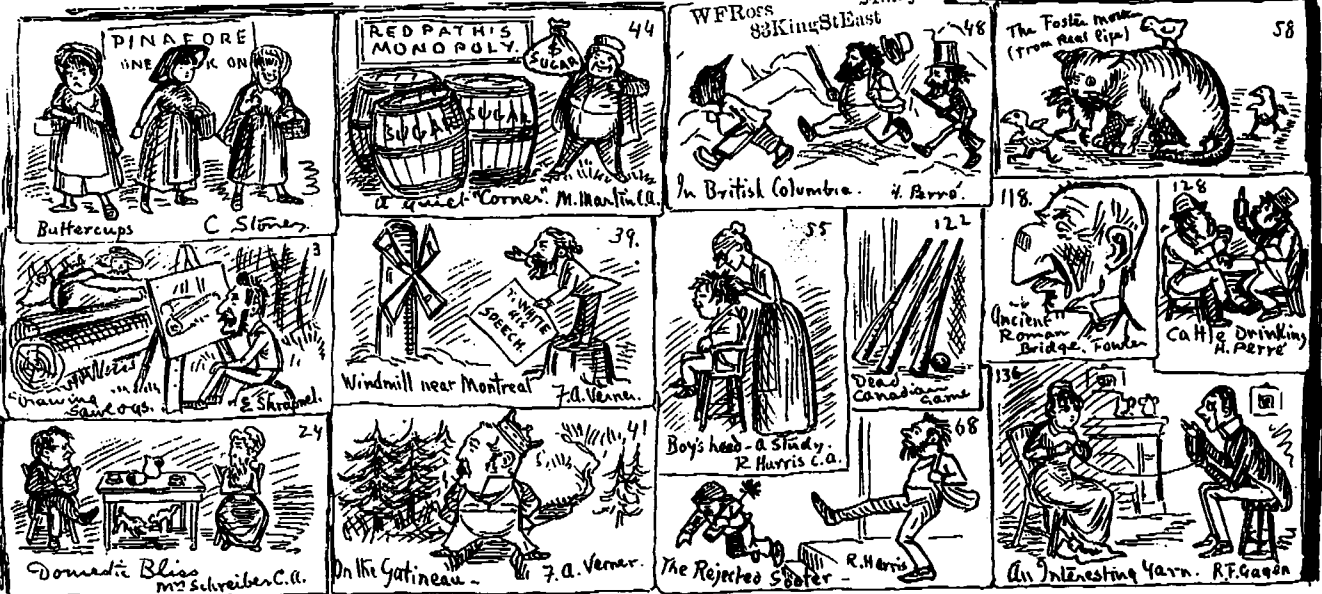 PINAFORE
ONE K ON
Buttercups
C Stones
44
REDPATH'S
MONOPOLY.
$
SUGAR
SUGAR
SUGAR
A quiet "Corner". M. Martin C.A.
WFRoss
83KingStEast
48
In British Columbia.
H. Perré.
The Foster Mother
(From Real life)
58
3
"Drawing
Sawlogs."
E Shrapnel.
39.
T. WHITE
HIS
SPEECH.
Windmill near Montreal
F.A. Verner.
55
Boy's head - a Study.
R Harris C.A.
122
Dead
Canadian
Game
118.
"Ancient"
Roman
Bridge. Fowler
128
Cattle Drinking
H. Perré
24
Domestic Bliss
Mrs Schreiber C.A.
41
On the Gatineau -
F.A. Verner.
68
The Rejected Sooter -
R. Harris
136
An Interesting Yarn. R.F. Gagen